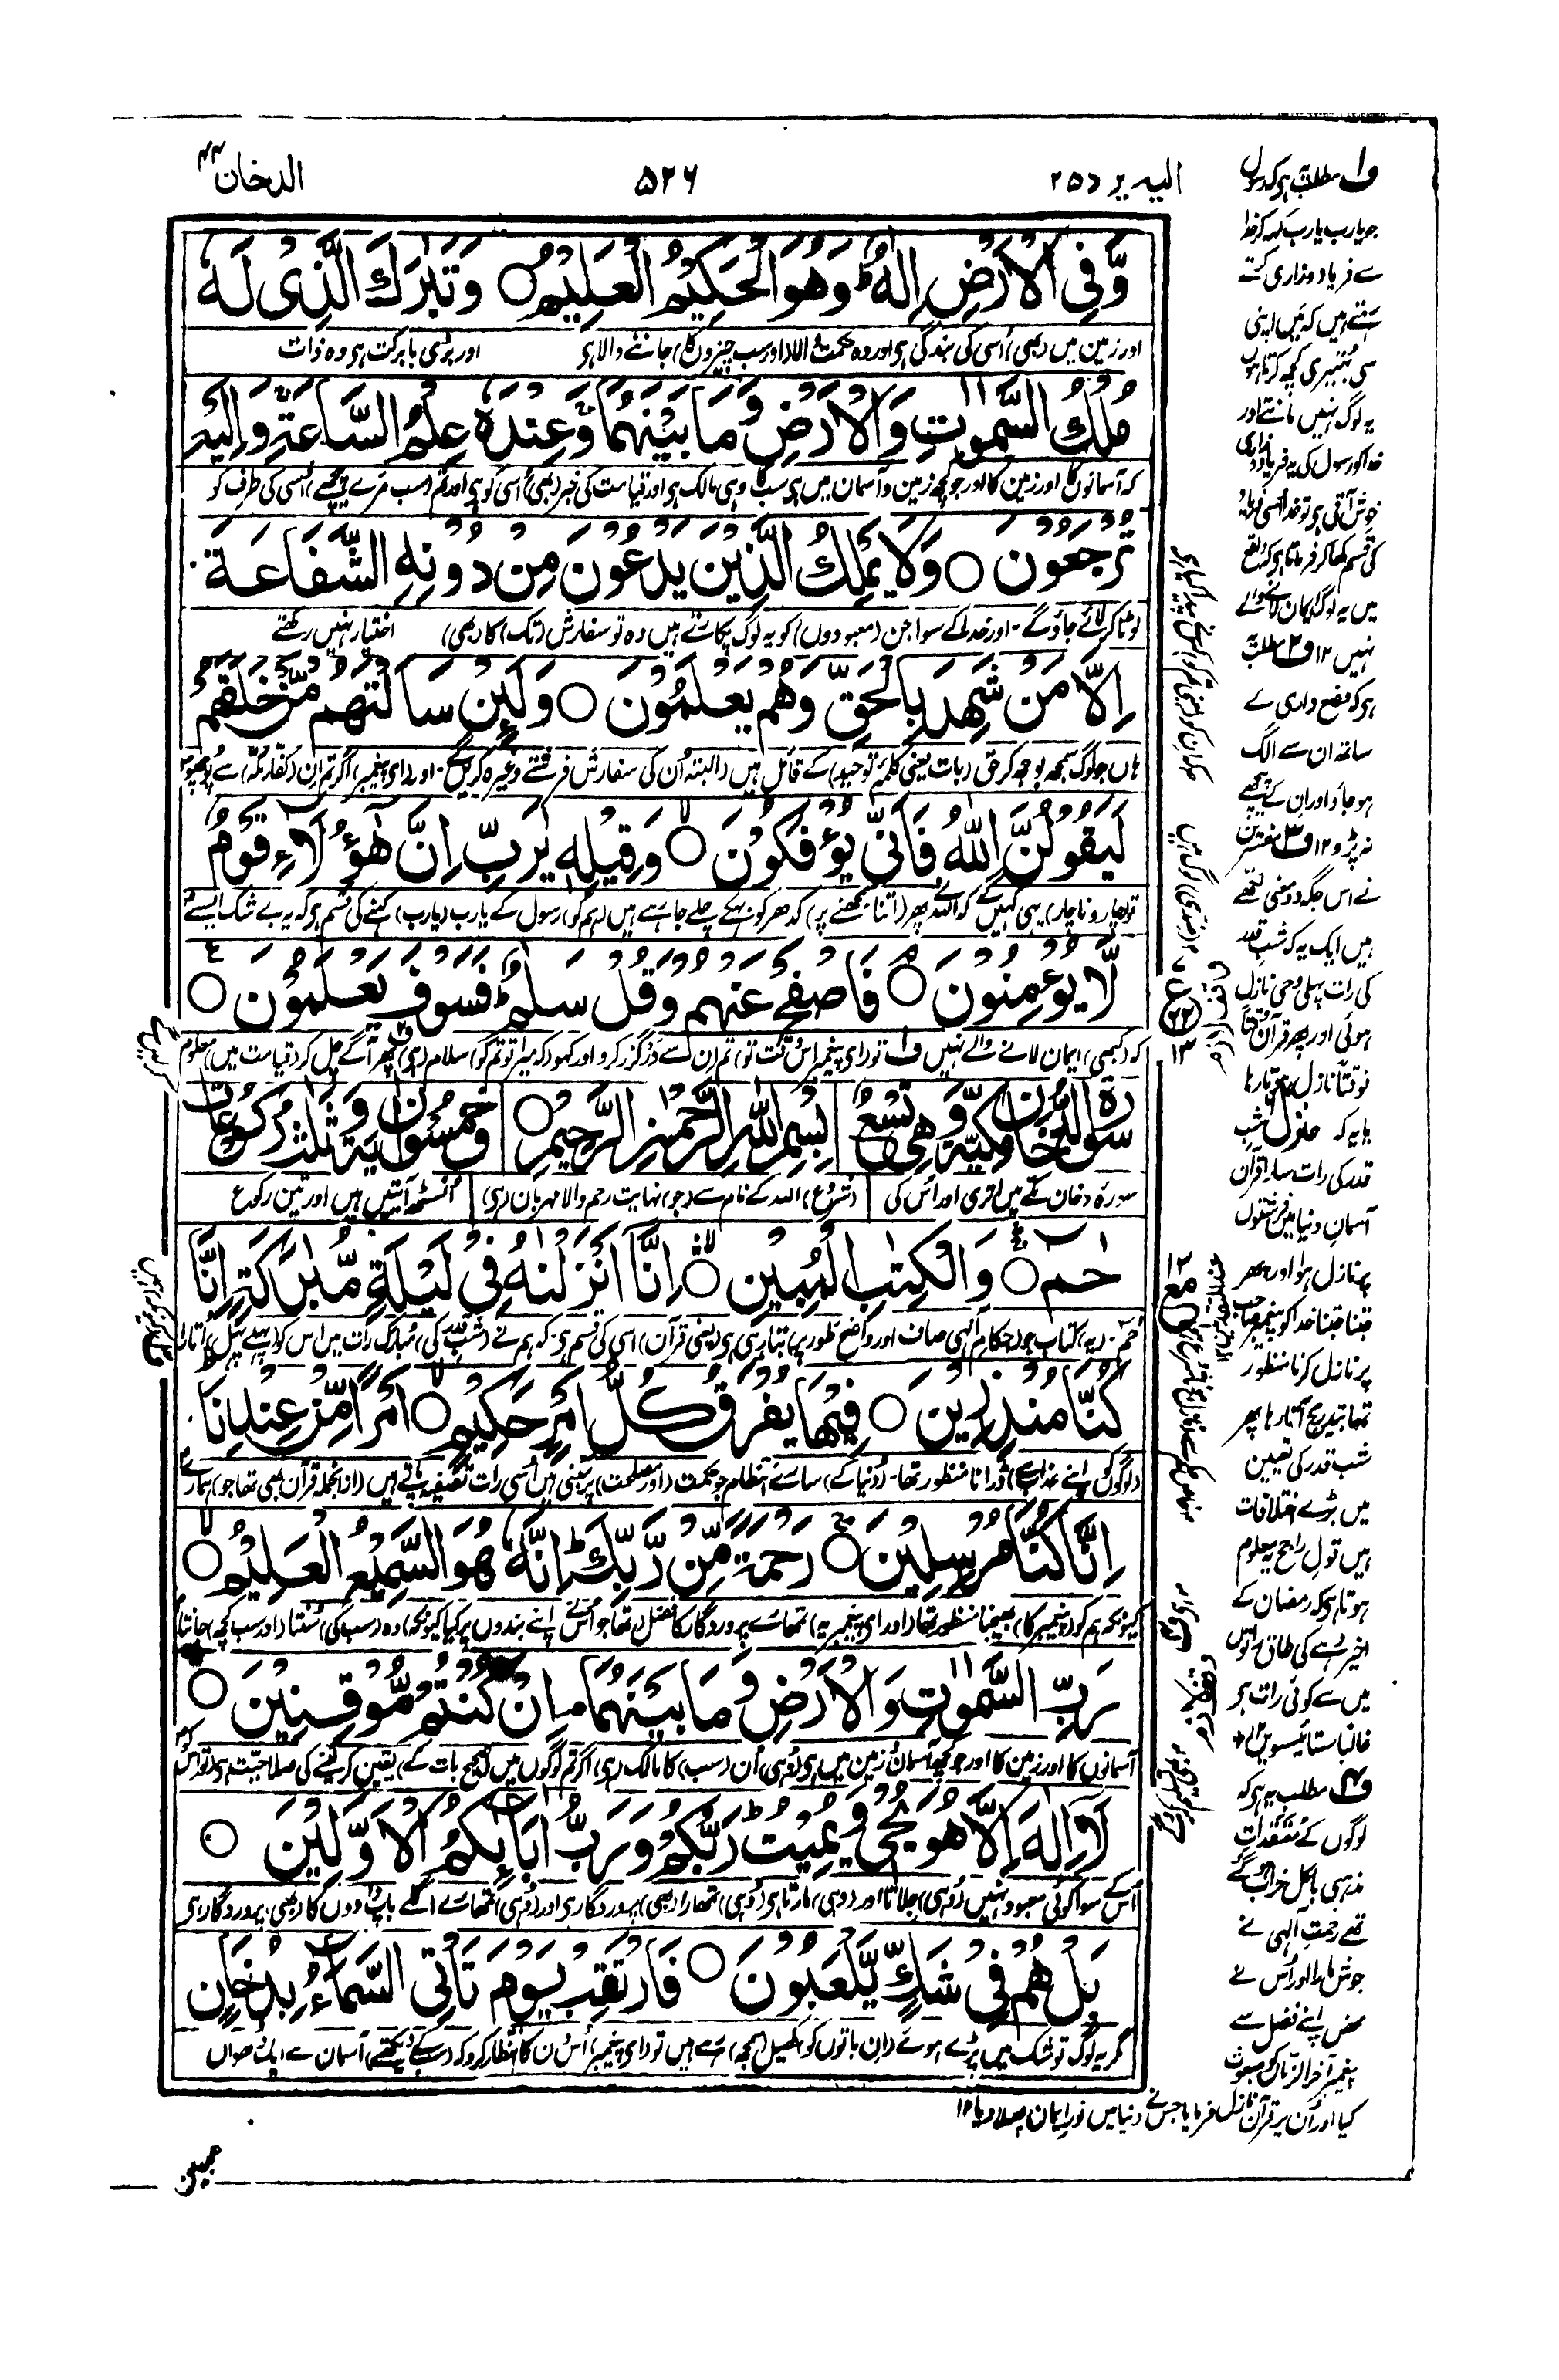 الیہ یرد ۲۵
۵۲۶
الدخان ۴۴
وَّفِی الْاَرْضِ اِلٰهٌ ؕ وَهُوَ الْحَكِیْمُ الْعَلِیْمُ ○ وَتَبٰرَكَ الَّذِیْ لَهٗ
اور زمین میں (بھی) اُسی کی بندگی ہی اور وہ حکمت والا (اور سب چیزوں کا) جاننے والا ہی اور بڑی بابرکت ہی وہ ذات
مُلْكُ السَّمٰوٰتِ وَالْاَرْضِ وَمَا بَیْنَهُمَا ۚ وَعِنْدَهٗ عِلْمُ السَّاعَةِ ۚ وَاِلَیْهِ
کہ آسمانوں کا اور زمین کا اور جو کچھ زمین و آسمان میں ہی سب کا وہی مالک ہی اور قیامت کی خبر (بھی) اُسی کو ہی اور تم (سب مرے پیچھے) اُسی کی طرف کو
تُرْجَعُوْنَ ○ وَلَا یَمْلِكُ الَّذِیْنَ یَدْعُوْنَ مِنْ دُوْنِهِ الشَّفَاعَةَ
لوٹا کر لائے جاؤگے ۔ اور خدا کے سوا جن (معبودوں) کو یہ لوگ پکارتے ہیں وہ تو سفارش (تک) کا (بھی) اختیار نہیں رکھتے
اِلَّا مَنْ شَهِدَ بِالْحَقِّ وَهُمْ یَعْلَمُوْنَ ○ وَلَئِنْ سَاَلْتَهُمْ مَّنْ خَلَقَهُمْ
ہاں جو لوگ سمجھ بوجھ کر حق (بات یعنی کلمہ توحید) کے قائل ہیں (البتہ اُن کی سفارش فرشتے وغیرہ کریں گے) ۔ اور (ای پیغمبر) اگر تم ان (کفار مکہ) سے پوچھو
لَیَقُوْلُنَّ اللّٰهُ فَاَنّٰی یُؤْفَكُوْنَ ○ وَقِیْلِهٖ یٰرَبِّ اِنَّ هٰۤؤُلَآءِ قَوْمٌ
تو (چار و ناچار) یہی کہیں گے کہ اللہ نے پھر (اتنا سمجھنے پر) کدھر کو بہکے چلے جا رہے ہیں (ہم کو) رسول کے یارب (یارب) کہنے کی قسم ہی کہ یہ بے شک ایسے
لَّا یُؤْمِنُوْنَ ○ فَاصْفَحْ عَنْهُمْ وَقُلْ سَلٰمٌ ؕ فَسَوْفَ یَعْلَمُوْنَ ○
کہ (کبھی) ایمان لانے والے نہیں ف۱ تو (ای پیغمبر اس وقت تو) تم ان سے درگزر کرو اور کہو (کہ میرا تو تم کو) سلام (ہی) ف۲ پھر آگے چل کر (قیامت میں) معلوم
سُوْرَةُ الدُّخَانِ مَكِّیَّةٌ وَّهِیَ تِسْعٌ | بِسْمِ اللّٰهِ الرَّحْمٰنِ الرَّحِیْمِ ○ | وَّخَمْسُوْنَ اٰیَةً وَّثَلٰثُ رُكُوْعَاتٍ
سورۂ دخان مکے میں اتری اور اُس کی | (شروع) اللہ کے نام سے (جو) نہایت رحم والا مہربان (ہی) | اُنسٹھ آیتیں ہیں اور تین رکوع
حٰمٓ ○ وَالْكِتٰبِ الْمُبِیْنِ ○ اِنَّاۤ اَنْزَلْنٰهُ فِیْ لَیْلَةٍ مُّبٰرَكَةٍ اِنَّا
حٰمٓ ۔ (یہ) کتاب جو (احکام الٰہی صاف اور) واضح طور پر بتا رہی ہی (یعنی قرآن) اسی کی قسم ہی ۔ کہ ہم نے (شب قدر کی) مبارک رات میں اس کو (پہلے پہل) اُتارا
كُنَّا مُنْذِرِیْنَ ○ فِیْهَا یُفْرَقُ كُلُّ اَمْرٍ حَكِیْمٍ ○ اَمْرًا مِّنْ عِنْدِنَا
(لوگوں کو اپنے عذاب سے) ڈرانا منظور تھا ۔ (دنیا کے) سارے انتظام جو حکمت (اور مصلحت) پر مبنی ہیں اُسی رات تصفیہ پاتے ہیں (ازانجملہ قرآن بھی تھا جو) ہمارے
اِنَّا كُنَّا مُرْسِلِیْنَ ○ رَحْمَةً مِّنْ رَّبِّكَ ؕ اِنَّهٗ هُوَ السَّمِیْعُ الْعَلِیْمُ ○
کیونکہ ہم کو (پیغمبر کا) بھیجنا منظور تھا (اور ای پیغمبر یہ) تمھارے پروردگار کا فضل (تھا جو اُس نے اپنے بندوں پر کیا کیونکہ) وہ (سب کی) سُنتا (اور سب کچھ) جانتا
رَبِّ السَّمٰوٰتِ وَالْاَرْضِ وَمَا بَیْنَهُمَا ۘ اِنْ كُنْتُمْ مُّوْقِنِیْنَ ○
آسمانوں کا اور زمین کا اور جو کچھ آسمان و زمین میں ہی (وہی) اُن (سب) کا مالک (ہی) اگر تم لوگوں میں (صحیح بات کے) یقین کر لینے کی صلاحیت ہی تو اس کو
لَاۤ اِلٰهَ اِلَّا هُوَ یُحْیٖ وَیُمِیْتُ ؕ رَبُّكُمْ وَرَبُّ اٰبَآئِكُمُ الْاَوَّلِیْنَ ○
اُس کے سوا کوئی معبود نہیں (وہی) جِلاتا اور (وہی) مارتا ہی (وہی) تمھارا (بھی) پروردگار ہی اور (وہی) تمھارے اگلے باپ دادوں کا (بھی) پروردگار ہی
بَلْ هُمْ فِیْ شَكٍّ یَّلْعَبُوْنَ ○ فَارْتَقِبْ یَوْمَ تَاْتِی السَّمَآءُ بِدُخَانٍ
مگر یہ لوگ تو شک میں پڑے ہوئے (ان باتوں کو) کھیل (سمجھ) رہے ہیں تو (ای پیغمبر) اُس دن کا انتظار کرو کہ (سب کے دیکھتے) آسمان سے ایک دھواں
ف۱ مطلب یہ ہی کہ رسول
جو یارب یارب کہہ کر خدا
سے فریاد و زاری کرتے
رہتے ہیں کہ میں اپنی
سی بہتیری کچھ کرتا ہوں
یہ لوگ نہیں مانتے اور
خدا کو رسول کی یہ فریاد و زاری
خوش آتی ہی تو خدا اسی فریاد
کی قسم کھا کر فرماتا ہی کہ واقع
میں یہ لوگ ایمان لانے والے
نہیں ۱۲ ف۲ مطلب یہ
ہی کہ وضع داری کے
ساتھ ان سے الگ
ہو جاؤ اور ان کے پیچھے
نہ پڑو ۱۲ ف۳ مفسرین
نے اس جگہ دو معنی لکھے
ہیں ایک یہ کہ شب قدر
کی رات پہلی وحی نازل
ہوئی اور پھر قرآن وقتًا
فوقتًا نازل ہوتا رہا
یا یہ کہ منزل شب
قدر کی رات سارا قرآن
آسمان دنیا میں فرشتوں
پر نازل ہوا اور پھر
جتنا جتنا خدا کو پیغمبر صاحب
پر نازل کرنا منظور
تھا بتدریج اُتارتا رہا پھر
شب قدر کی تعیین
میں بڑے اختلافات
ہیں قول راجح یہ معلوم
ہوتا ہی کہ رمضان کے
اخیر دہے کی طاق راتوں
میں سے کوئی رات ہی
غالبًا ستائیسویں ۱۲
ف۴ مطلب یہ ہی کہ
لوگوں کے معتقدات
مذہبی بالکل خراب ہو گئے
تھے رحمت الٰہی نے
جوش مارا اور اُس نے
محض اپنے فضل سے
پیغمبر آخر الزماں کو مبعوث
کیا اور اُن پر قرآن نازل فرمایا جس نے دنیا میں نورِ ایمان پھیلا دیا ۱۲